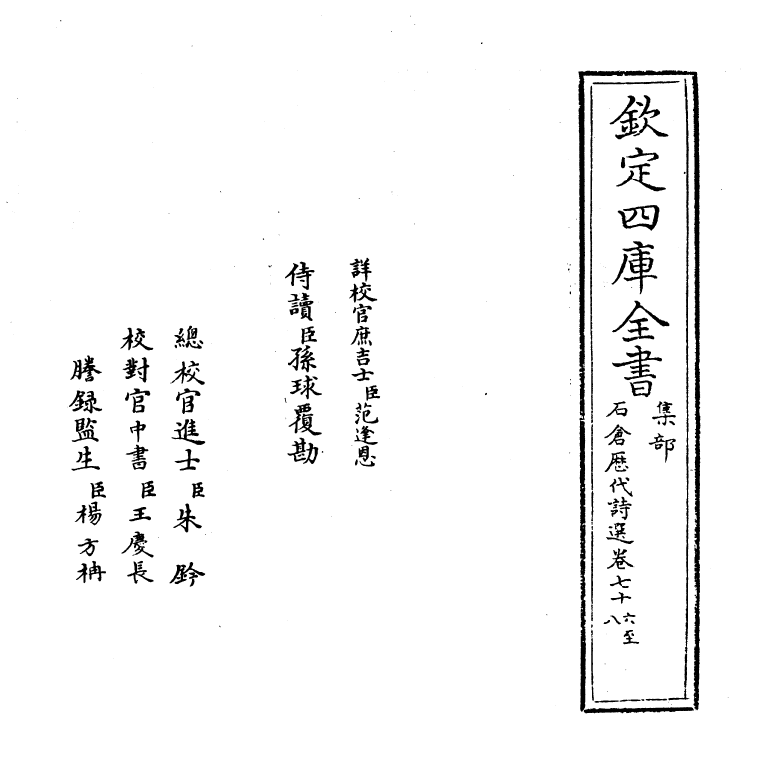 欽定四庫全書
集部
石倉歷代詩選卷七十六至八
詳校官庶吉士臣范逢恩
侍讀臣孫球覆勘
總校官進士臣朱鈐
校對官中書臣王慶長
謄錄監生臣楊方柟